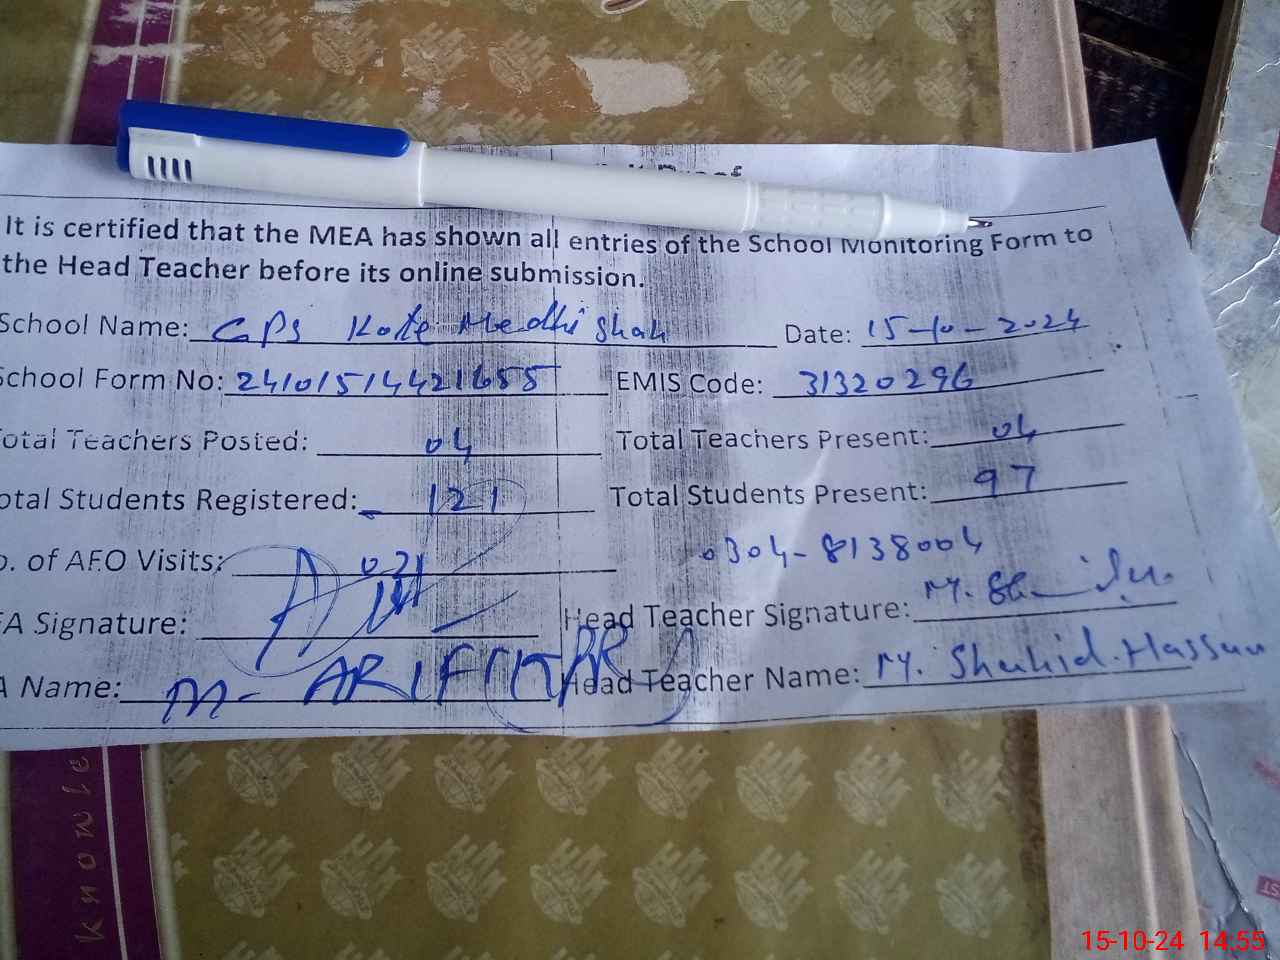 Proof
It is certified that the MEA has shown all entries of the School Monitoring Form to
the Head Teacher before its online submission.
School Name: GPS Kote Medhi Shah Date: 15-10-2024
School Form No: 24101514421655 EMIS Code: 31320296
otal Teachers Posted: 04 Total Teachers Present: 04
otal Students Registered: 121 Total Students Present: 97
o. of AFO Visits: 0304-8138004
EA Signature: Head Teacher Signature:
A Name: M- ARIF Head Teacher Name: M. Shahid Hassan
knowle
15-10-24 14:55